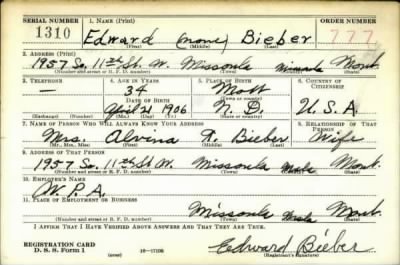 SERIAL NUMBER 1. NAME (Print) ORDER NUMBER
1310 Edward (none) Bieber 777
(First) (Middle) (Last)
2. ADDRESS (Print)
1957 So. 11th St. W. Missoula Missoula Mont.
(Number and street or R. F. D. number) (Town) (County) (State)
3. TELEPHONE 4. AGE IN YEARS 5. PLACE OF BIRTH 6. COUNTRY OF CITIZENSHIP
— 34 Mott
DATE OF BIRTH (Town or county)
April 1906 N. D. U. S. A.
(Exchange) (Number) (Mo.) (Day) (Yr.) (State or country)
7. NAME OF PERSON WHO WILL ALWAYS KNOW YOUR ADDRESS 8. RELATIONSHIP OF THAT PERSON
Mrs. Alvena R. Bieber Wife
(Mr., Mrs., Miss) (First) (Middle) (Last)
9. ADDRESS OF THAT PERSON
1957 So. 11th St W. Missoula Msla Mont.
(Number and street or R. F. D. number) (Town) (County) (State)
10. EMPLOYER'S NAME
W. P. A.
11. PLACE OF EMPLOYMENT OR BUSINESS
Missoula Msla Mont.
(Number and street or R. F. D. number) (Town) (County) (State)
I AFFIRM THAT I HAVE VERIFIED ABOVE ANSWERS AND THAT THEY ARE TRUE.
REGISTRATION CARD Edward Bieber
D. S. S. Form 1 (over) (Registrant's signature)